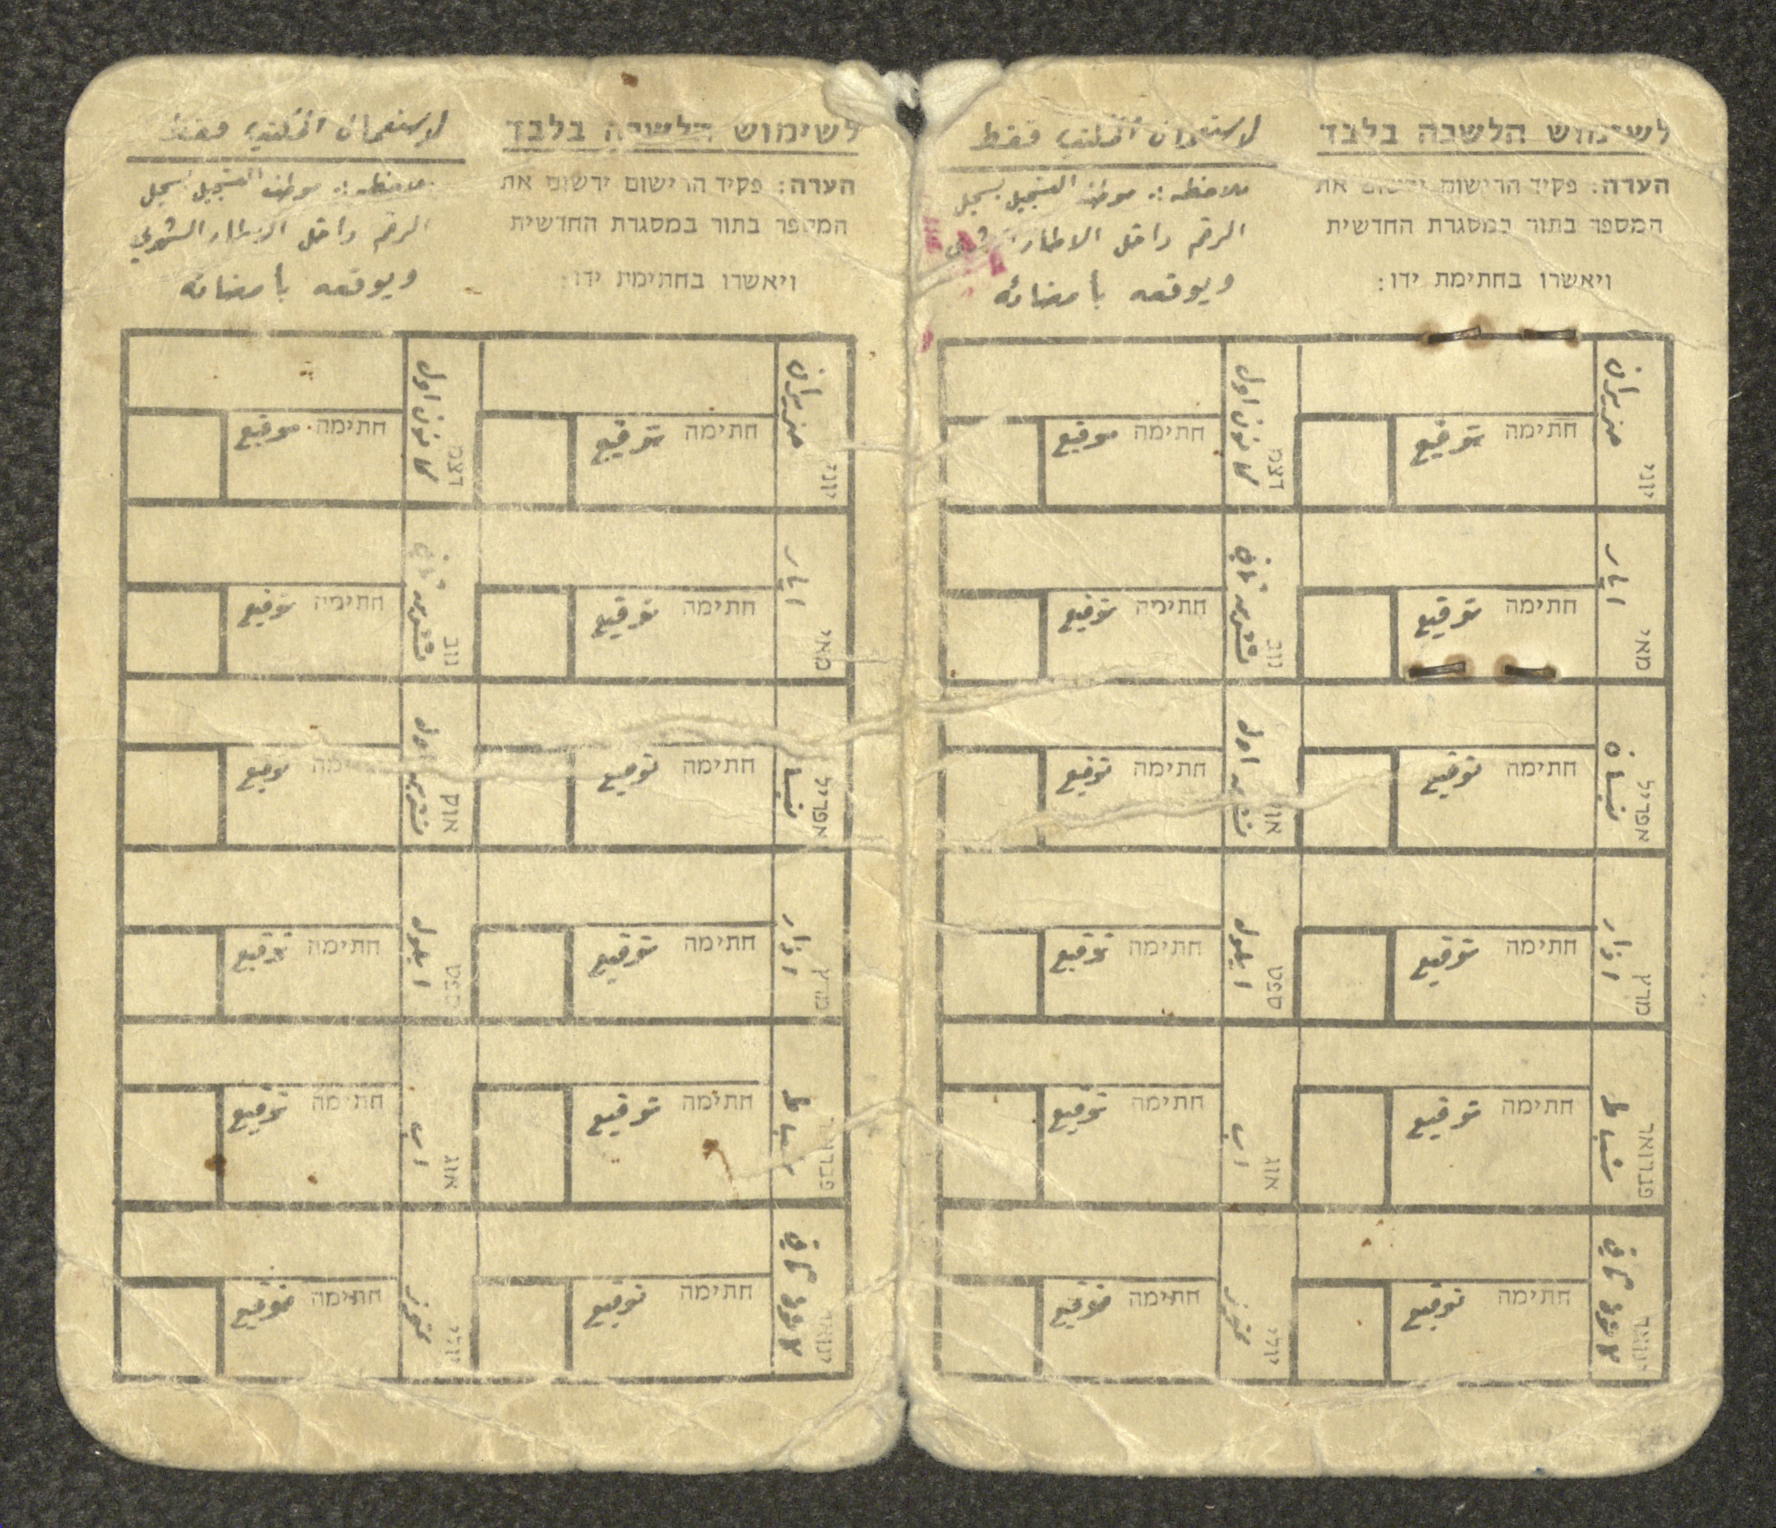 לשימוש הלשכה בלבד
הערה: פקיד הרישום ירשום את
המספר בתור במסגרת החדשית
ויאשרו בחתימת ידו:
لاستعمال المكتب فقط
ملاحظه: موظف التسجيل يسجل
الرقم داخل الاطار الشهري
ويوقعه بأمضائه
יוני حزيران
חתימה توقيع
דצמ كانون اول
חתימה توقيع
מאי ايار
חתימה توقيع
נוב تشرين ثاني
חתימה توقيع
אפריל نيسان
חתימה توقيع
אוק تشرين اول
חתימה توقيع
מרץ اذار
חתימה توقيع
ספט ايلول
חתימה توقيع
פברואר شباط
חתימה توقيع
אוג اب
חתימה توقيع
ינואר كانون ثاني
חתימה توقيع
יולי تموز
חתימה توقيع
לשימוש הלשכה בלבד
הערה: פקיד הרישום ירשום את
המספר בתור במסגרת החדשית
ויאשרו בחתימת ידו:
لاستعمال المكتب فقط
ملاحظه: موظف التسجيل يسجل
الرقم داخل الاطار الشهري
ويوقعه بأمضائه
יוני حزيران
חתימה توقيع
דצמ كانون اول
חתימה توقيع
מאי ايار
חתימה توقيع
נוב تشرين ثاني
חתימה توقيع
אפריל نيسان
חתימה توقيع
אוק تشرين اول
חתימה توقيع
מרץ اذار
חתימה توقيع
ספט ايلول
חתימה توقيع
פברואר شباط
חתימה توقيع
אוג اب
חתימה توقيع
ינואר كانون ثاني
חתימה توقيع
יולי تموز
חתימה توقيع